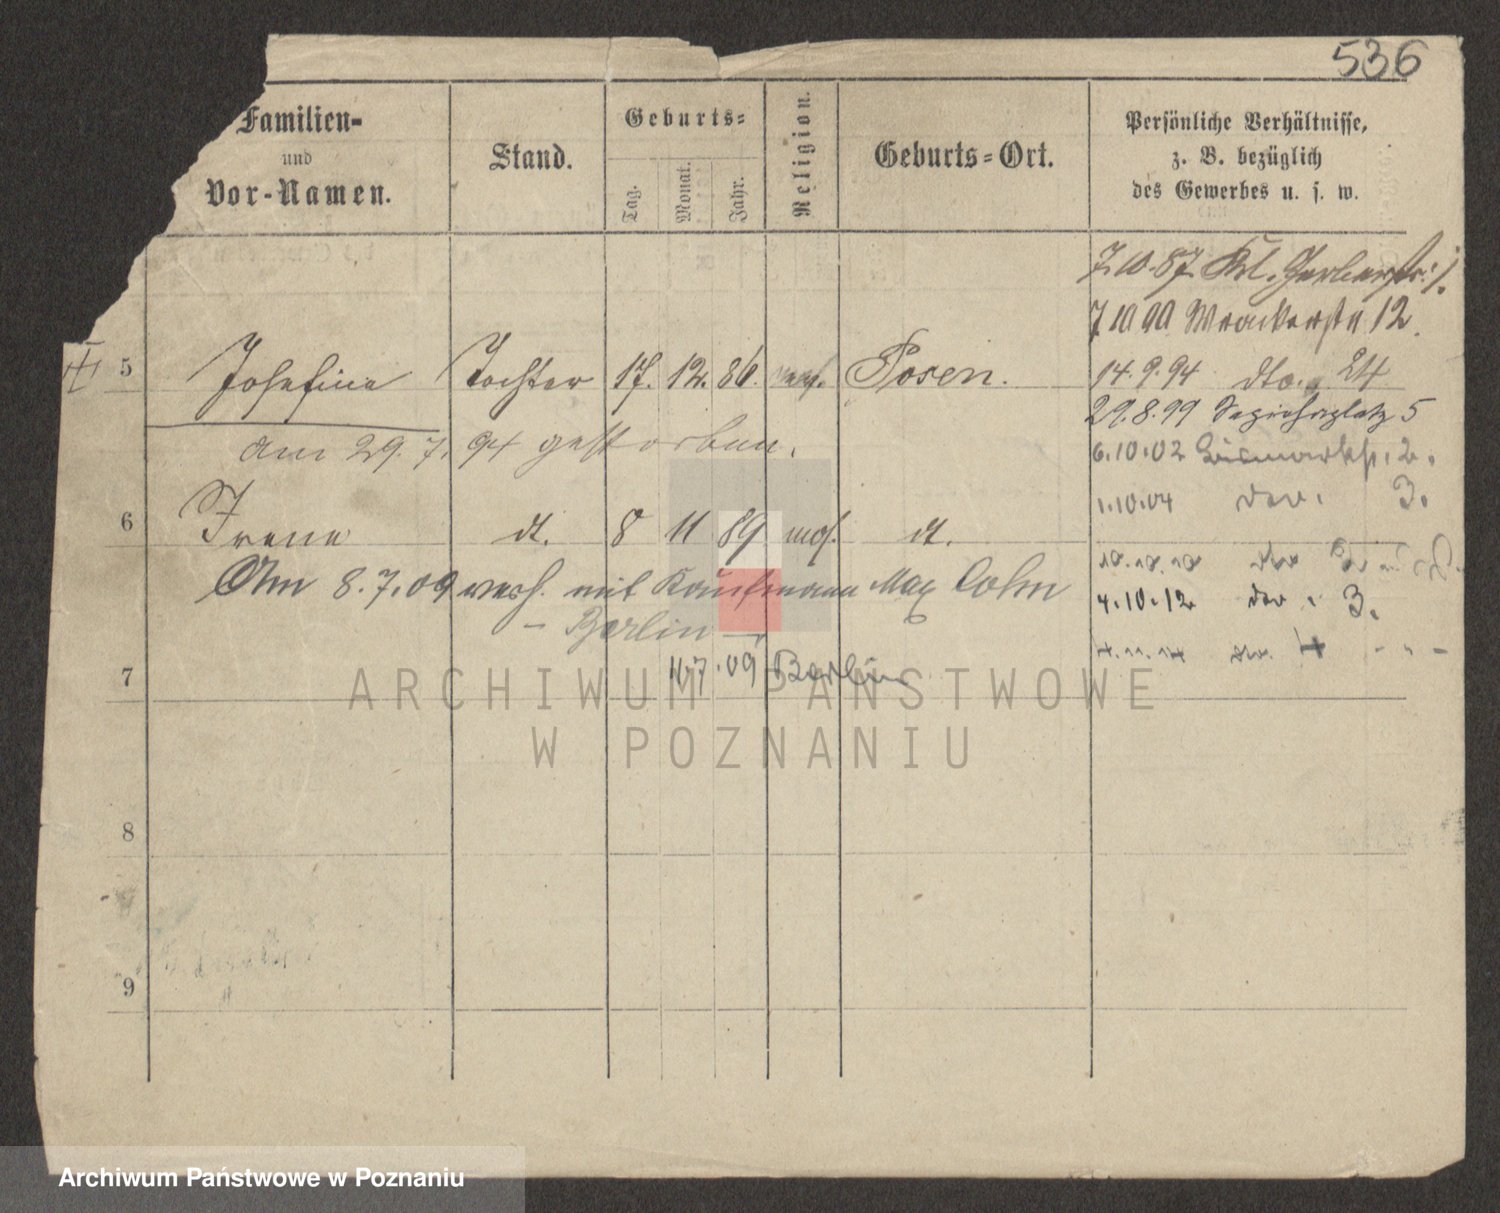 536
Familien-
und
Vor-Namen.
Stand.
Geburts-
Tag.
Monat.
Jahr.
Religion.
Geburts-Ort.
Persönliche Verhältnisse,
z. B. bezüglich
des Gewerbes u. s. w.
7.10.87 Kl. Gerberstr.
7 10 90 Wronkerstr 12.
5 Josefine Tochter 17. 12. 86. Posen.
14.9.94 dto. 24
am 29.7.94 gestorben.
29.8.99 Sapiehaplatz 5
6.10.02 Bismarckstr. 2.
1.10.04 3.
6 Irene dt. 8 11 89 mos. dt.
Am 8.7.09 verh. mit Kaufmann Max Cohn
4.10.12 3.
- Berlin -
7 11.7.09 Berlin
4.11.14 4
8
9
ARCHIWUM PAŃSTWOWE
W POZNANIU
Archiwum Państwowe w Poznaniu